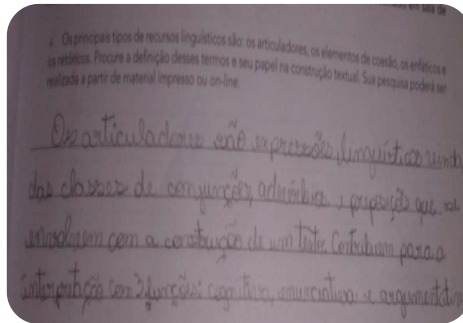 Os principais tipos de recursos linguísticos são: os articuladores, os elementos de coesão, os enfáticos e
os retóricos. Procure a definição desses termos e seu papel na construção textual. Sua pesquisa poderá ser
realizada a partir de material impresso ou on-line.
Os articuladores são expressões linguísticas
das classes de conjunções, advérbios e preposições que se
envolvem com a construção de um texto. Contribuem para a
interpretação com 3 funções: cognitiva, enunciativa e argumentativa